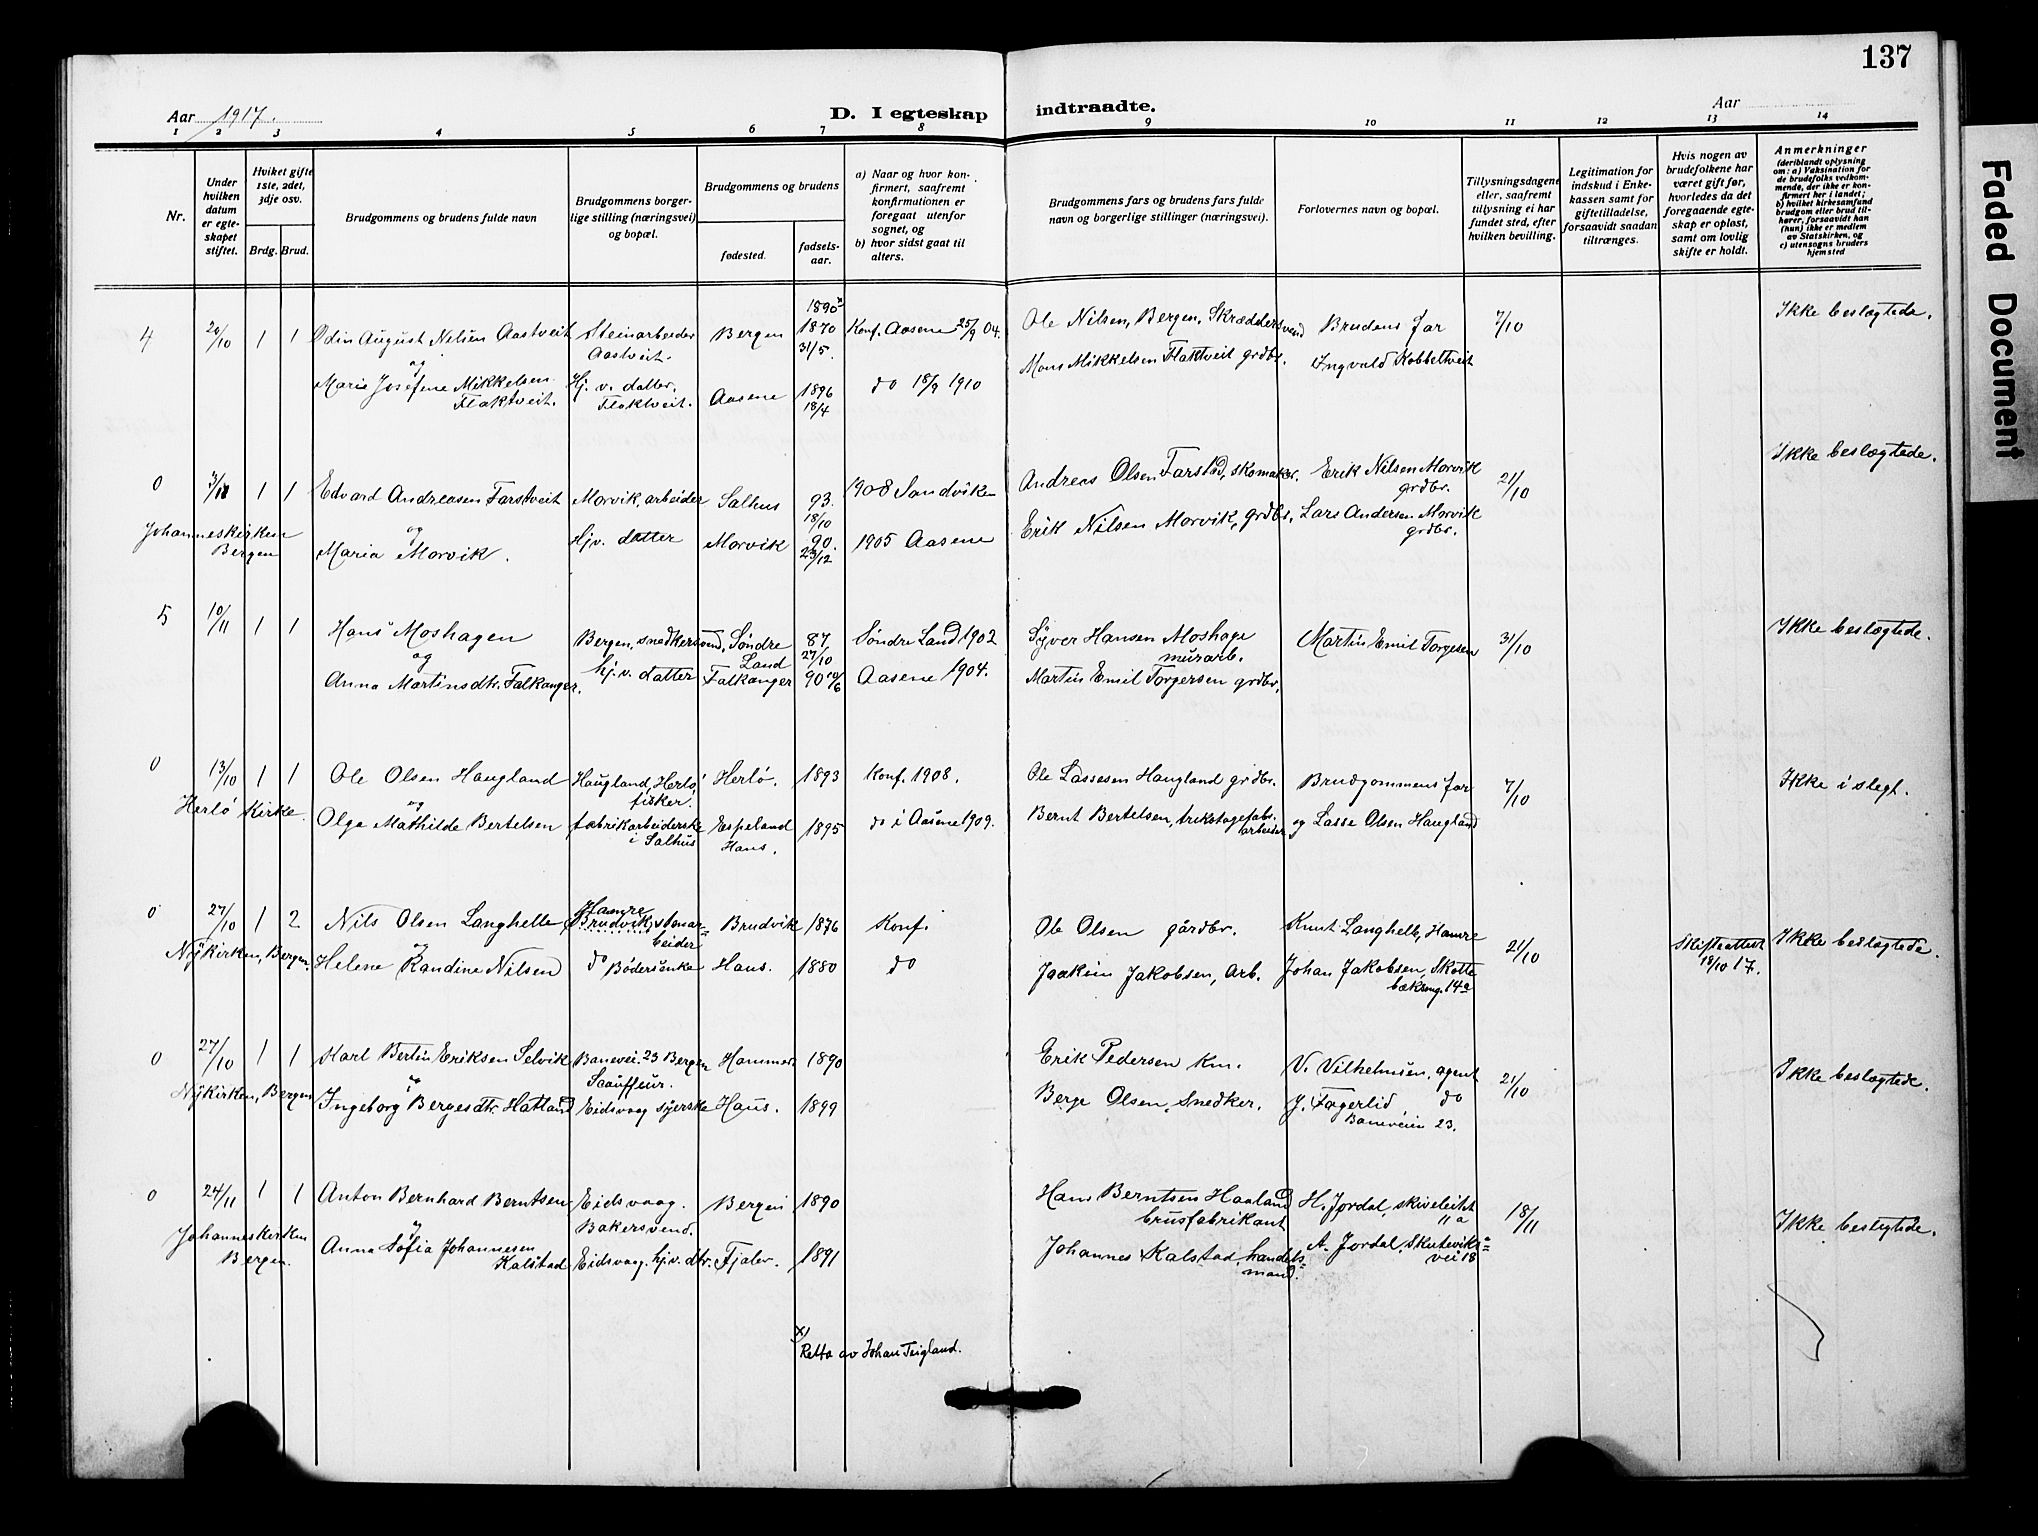 137
Aar 1917.
D. I egteskap indtraadte.
Aar
1 2 3 4 5 6 7 8 9 10 11 12 13 14
Nr.
Under hvilken datum er egteskapet stiftet.
Hviket gifte 1ste, 2det, 3dje osv.
Brdg. Brud.
Brudgommens og brudens fulde navn
Brudgommens borgerlige stilling (næringsvei) og bopæl.
Brudgommens og brudens
fødested.
fødselsaar.
a) Naar og hvor konfirmert, saafremt konfirmationen er foregaat utenfor sognet, og
b) hvor sidst gaat til alters.
Brudgommens fars og brudens fars fulde navn og borgerlige stillinger (næringsvei).
Forlovernes navn og bopæl.
Tillysningsdagene eller, saafremt tillysning ei har fundet sted, efter hvilken bevilling.
Legitimation for indskud i Enkekassen samt for giftetilladelse, forsaavidt saadan tiltrænges.
Hvis nogen av brudefolkene har været gift før, hvorledes da det foregaaende egteskap er opløst, samt om lovlig skifte er holdt.
Anmerkninger
(deriblandt oplysning om: a) Vaksination for de brudefolks vedkommende, der ikke er konfirmert her i landet; b) hvilket kirkesamfund brudgom eller brud tilhører, forsaavidt han (hun) ikke er medlem av Statskirken, og c) utensogns bruders hjemsted
4 20/10 1 1 Odin August Nelsen Aastveit Steinarbeider Aastveit. Bergen 1890x 1870 31/5. Konf. Aasene 25/9 04. Ole Nilsen, Bergen, Skræddersvend Brudens far 7/10 Ikke beslægtede.
og
Marie Josefine Mikkelsen Flaktveit. Hj. v. datter, Flaktveit. Aasene 1896 18/4 do 18/9 1910 Mons Mikkelsen Flaktveit grdbr. Ingvald Kobbeltveit
0 3/11 1 1 Edvard Andreasen Farstveit Morvik, arbeider Salhus 93. 18/10 1908 Sandviken Andreas Olsen Farstad, skomaker. Erik Nilsen Morvik grdbr. 21/10 Ikke beslægtede.
Johanneskirken Bergen
og
Maria Morvik. Hjv. datter Morvik 90. 23/12 1905 Aasene Erik Nilsen Morvik, grdbr. Lars Andersen Morvik grdbr.
5 10/11 1 1 Hans Moshagen Bergen, snedkersvend, Søndre Land 87 27/10 Søndre Land 1902 Syver Hansen Moshage murarb. Martin Emil Torgesen 31/10 Ikke beslægtede.
og
Anna Martinsdtr. Falkanger. hj. v. datter Falkanger 90 10/6 Aasene 1904. Martin Emil Torgersen grdbr.
0 13/10 1 1 Ole Olsen Haugland Haugland, Herlö, fisker. Herlö. 1893 Konf. 1908. Ole Lassesen Haugland grdbr. Brudgommens far 7/10 Ikke i slegt.
Herlö Kirke.
og
Olga Mathilde Bertelsen fabrikarbeiderske i Salhus Espeland Haus. 1895 do i Aasene 1909. Bernt Bertelsen, trikotagefabr. arbeider og Lasse Olsen Haugland
0 27/10 1 2 Nils Olsen Langhelle Hamre Brudvik, stenarbeider Brudvik 1876 Konf. Ole Olsen gårdbr. Knut Langhelle, Hamre 21/10 Skifteattest 18/10 17. Ikke beslægtede.
Nÿkirken, Bergen.
og
Helene Randine Nilsen do Bödersenke Haus. 1880 do Joakim Jakobsen, Arb. Johan Jakobsen, Skottebæksmg. 14a
0 27/10 1 1 Karl Bertin Eriksen Selvik Banevei. 23 Bergen Scauffeur. Hammer. 1890 Erik Pedersen Km. V. Vilhelmsen, agent 21/10 Ikke beslægtede.
Nÿkirken, Bergen
og
Ingeborg Bergesdtr. Hatland Eidsvaag syerske Haus. 1899 Berge Olsen, Snedker. J. Fagerlid do Baneveien 23.
0 24/11 1 1 Anton Bernhard Berntsen Eidsvaag. Bakersvend. Bergen 1890 Hans Berntsen Haaland brusfabrikant H. Jordal, skivebakt 11a 18/11 Ikke beslegtede.
Johanneskirken Bergen.
og
Anna Sofia Johannesen Kalstad Eidsvaag. hj. v. dtr. Fjaler. 1891 Johannes Kalstad, handelsmand. A. Jordal, Skuteviksvei 18
x) Retta av Johan Teigland.
Faded Document